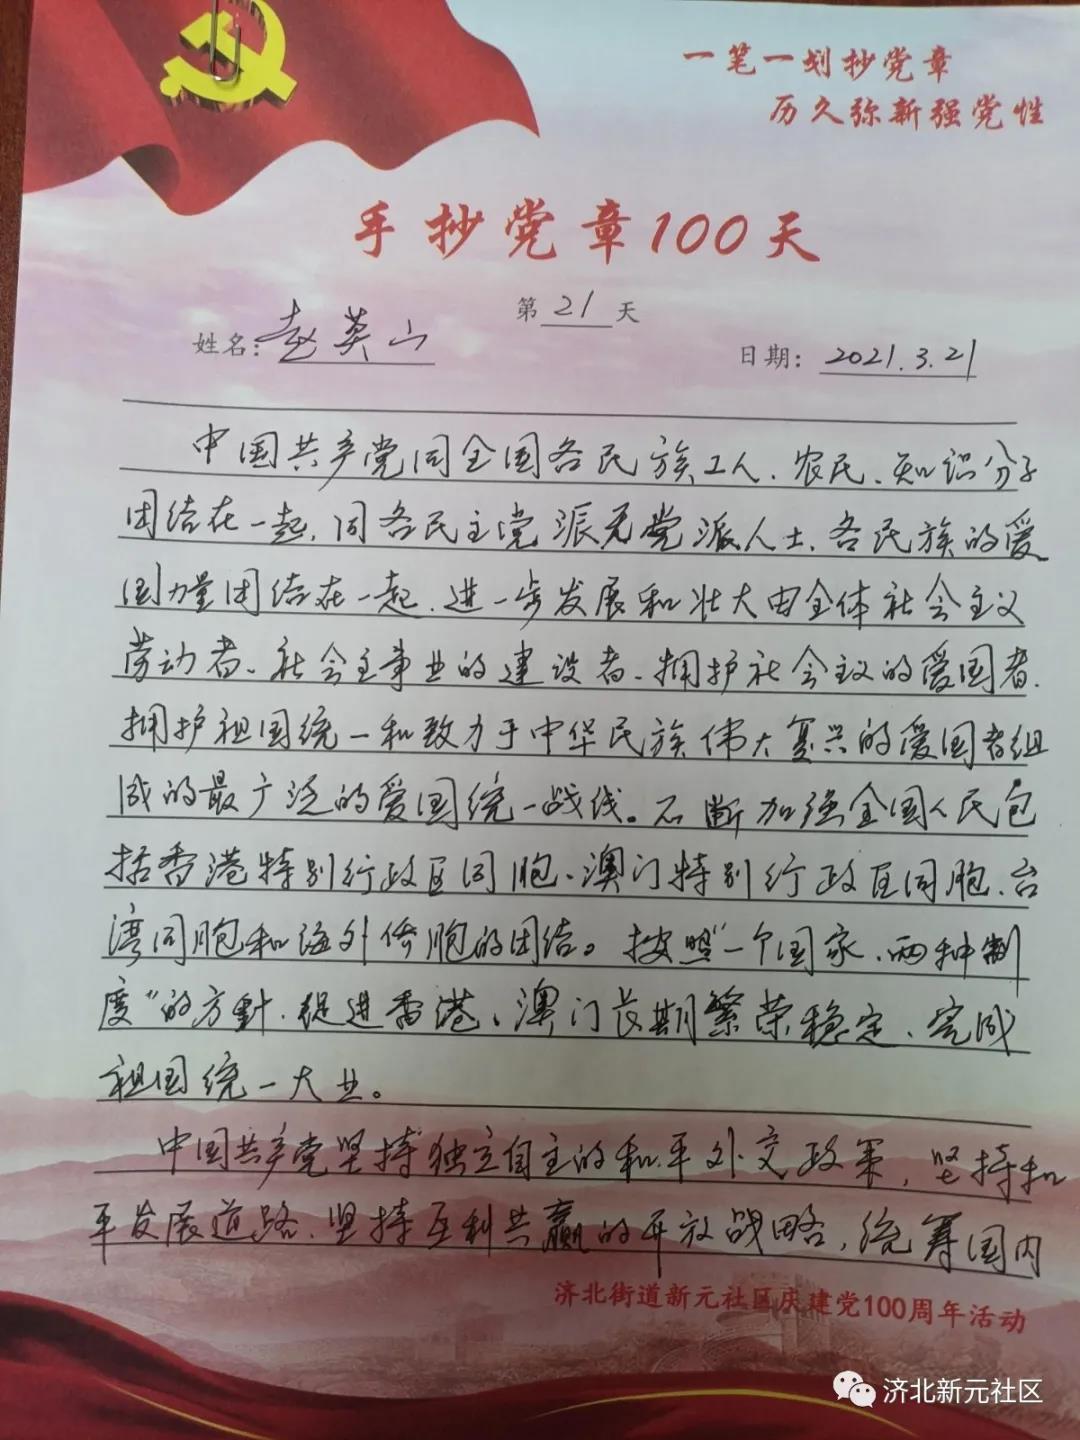 一笔一划抄党章
历久弥新强党性
手抄党章100天
第21天
姓名：赵英山
日期：2021.3.21
中国共产党同全国各民族工人、农民、知识分子
团结在一起，同各民主党派无党派人士、各民族的爱
国力量团结在一起，进一步发展和壮大由全体社会主义
劳动者、社会主事业的建设者、拥护社会主义的爱国者、
拥护祖国统一和致力于中华民族伟大复兴的爱国者组
成的最广泛的爱国统一战线。不断加强全国人民包
括香港特别行政区同胞、澳门特别行政区同胞、台
湾同胞和海外侨胞的团结。按照“一个国家、两种制
度”的方针，促进香港、澳门长期繁荣稳定、完成
祖国统一大业。
中国共产党坚持独立自主的和平外交政策，坚持和
平发展道路，坚持互利共赢的开放战略，统筹国内
济北街道新元社区庆建党100周年活动
济北新元社区